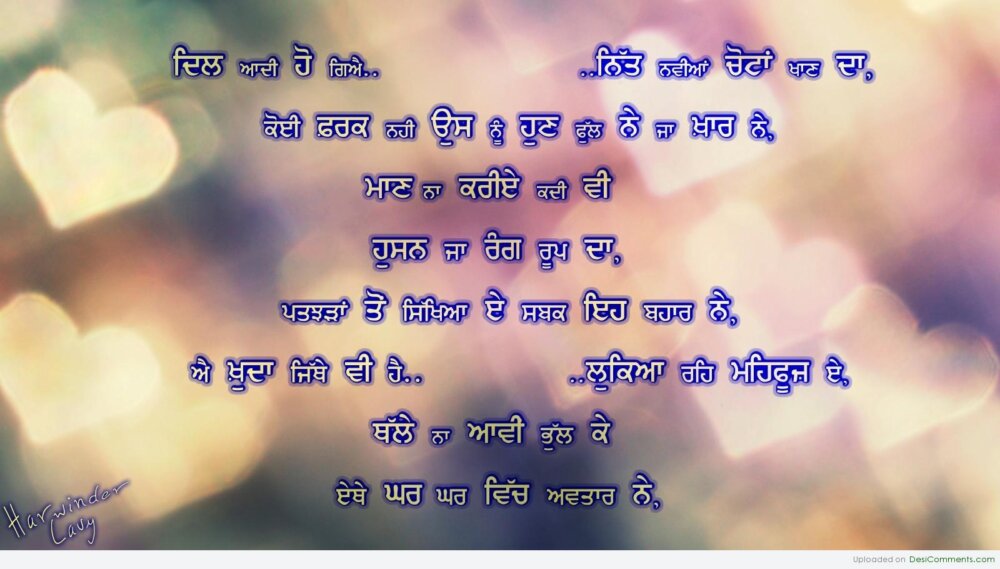 ਦਿਲ ਆਦੀ ਹੋ ਗਿਐ.. ..ਨਿੱਤ ਨਵੀਆਂ ਚੋਟਾਂ ਖਾਣ ਦਾ,
ਕੋਈ ਫ਼ਰਕ ਨਹੀ ਉਸ ਨੂੰ ਹੁਣ ਫੁੱਲ ਨੇ ਜਾ ਖ਼ਾਰ ਨੇ,
ਮਾਣ ਨਾ ਕਰੀਏ ਕਦੀ ਵੀ
ਹੁਸਨ ਜਾ ਰੰਗ ਰੂਪ ਦਾ,
ਪਤਝੜਾਂ ਤੋਂ ਸਿਖਿਆ ਏ ਸਬਕ ਇਹ ਬਹਾਰ ਨੇ,
ਐ ਖ਼ੁਦਾ ਜਿੱਥੇ ਵੀ ਹੈ.. ..ਲੁਕਿਆ ਰਹਿ ਮਹਿਫੂਜ਼ ਏ,
ਥੱਲੇ ਨਾ ਆਵੀ ਭੁੱਲ ਕੇ
ਏਥੇ ਘਰ ਘਰ ਵਿੱਚ ਅਵਤਾਰ ਨੇ,
Harwinder
Lavy
Uploaded on DesiComments.com